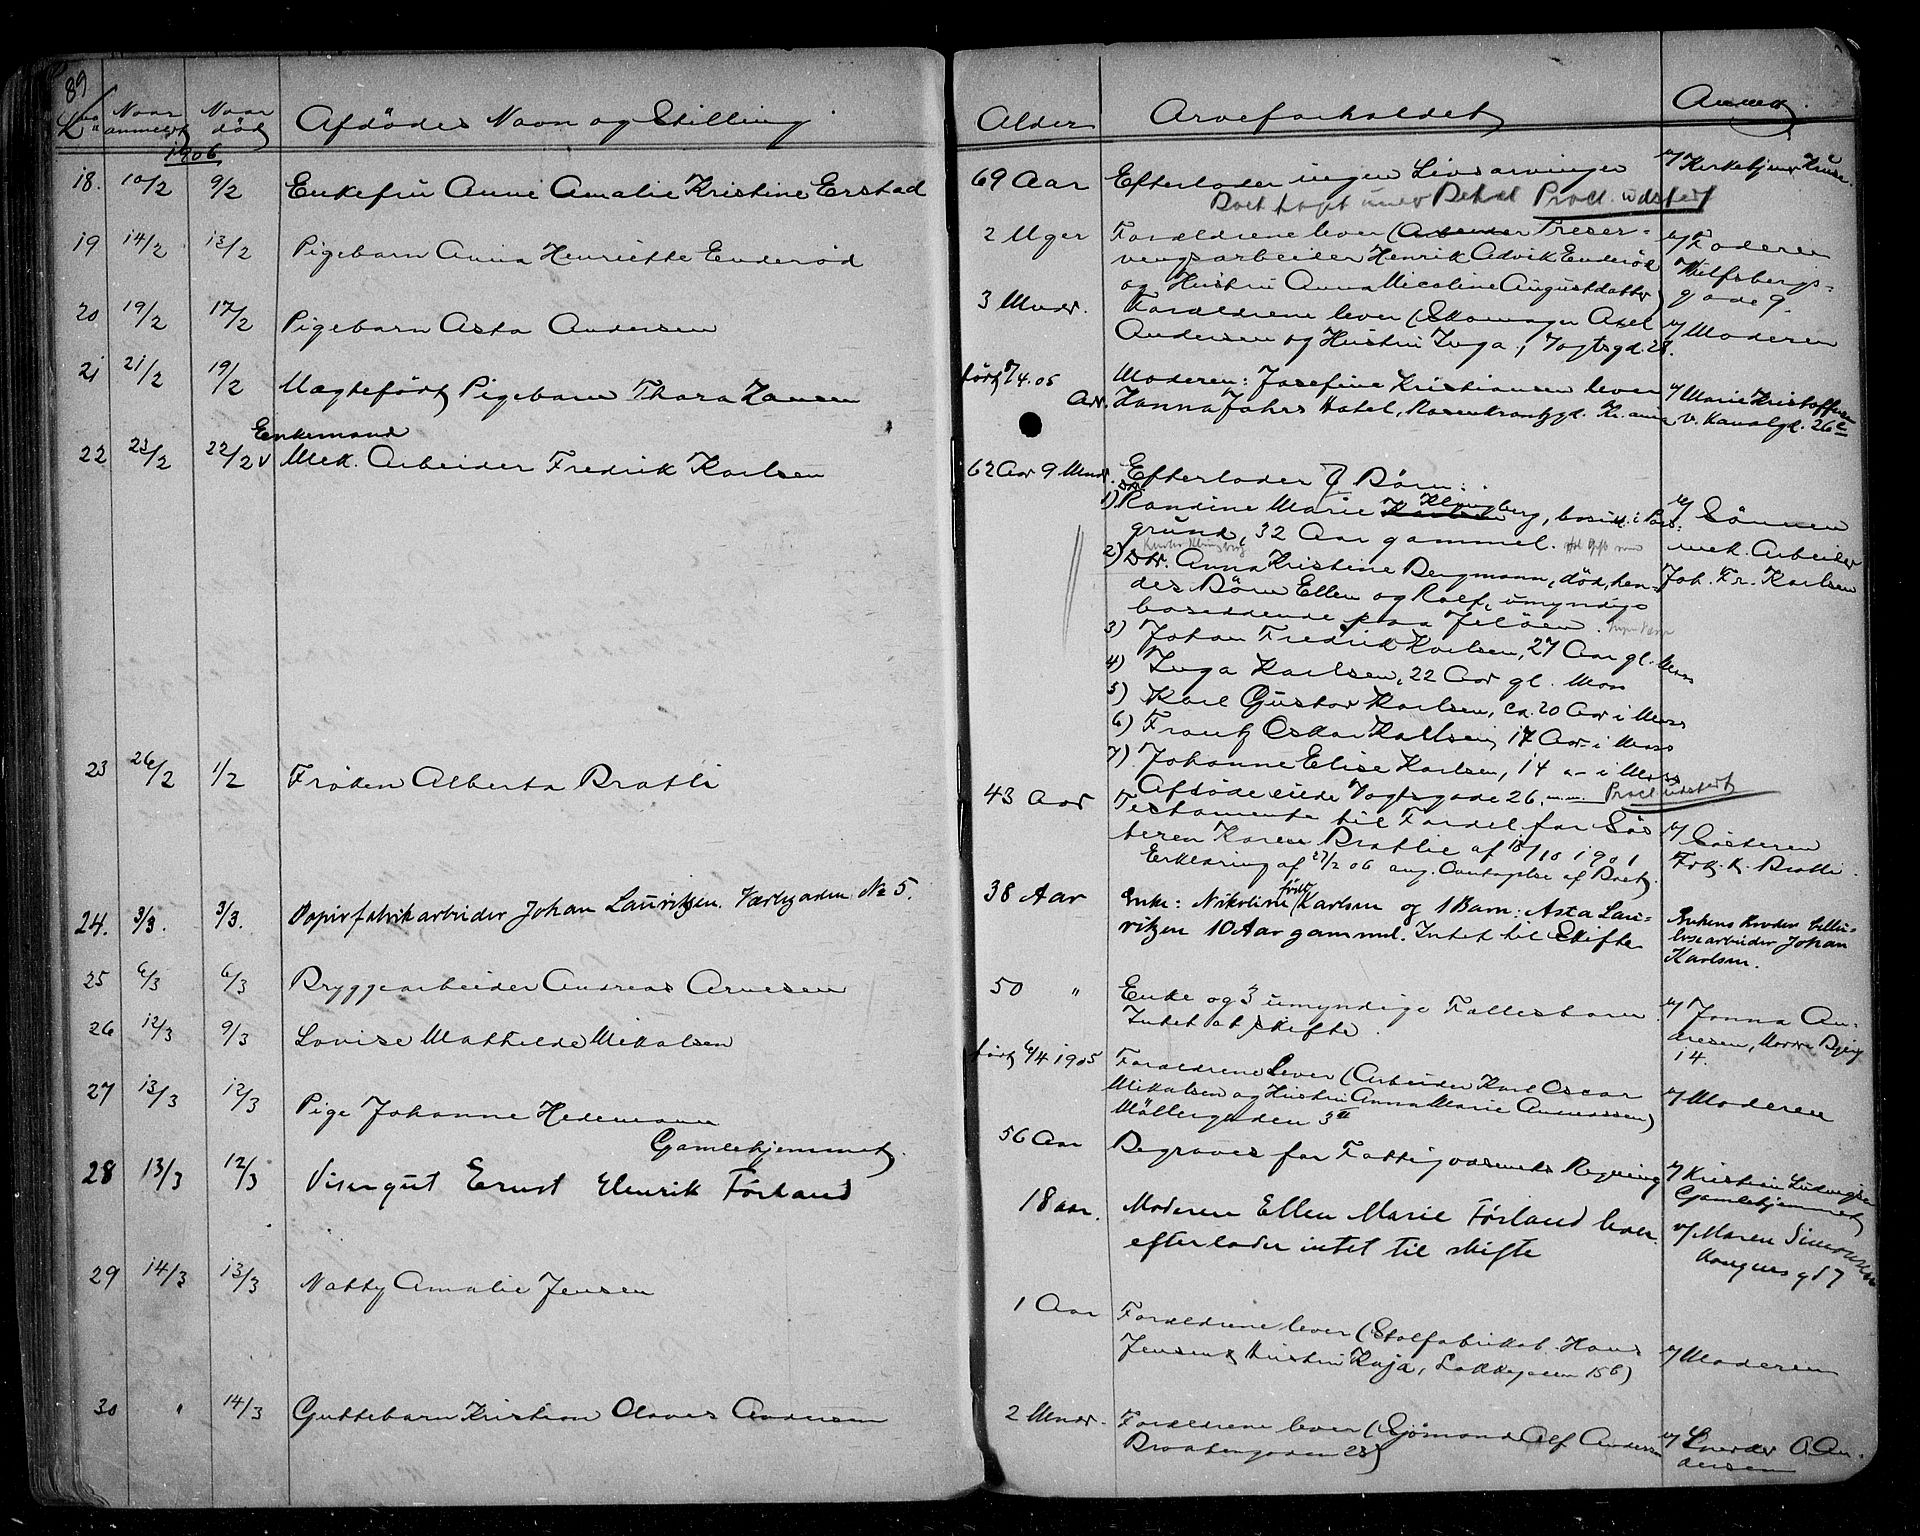 89
No Naar anmeldt Naar død Afdødes Navn og Stilling Alder Arveforholdet Anmed
1906
18. 10/2 9/2 Enkefru Anne Amalie Kristine Erstad 69 Aar Efterlader ingen Livsarvinger v/ Kirketjener Kruse.
Boet Procl. udstedt
19 14/2 13/2 Pigebarn Anna Henriette Enderød 2 Uger Forældrene lever (Arbeider Træser- v/ Faderen
vingsarbeider Henrik Advik Enderød
og Hustru Anna Nicoline Augustdatter) gade 9.
20 19/2 17/2 Pigebarn Asta Andersen 3 Mndr. Forældrene lever (Skomager Axel v/ Moderen
Andersen og Hustru Inga, Vogtsgd. 28.
21 21/2 19/2 Uægtefødt Pigebarn Thora Hansen født 9/4.05 Moderen: Josefine Kristiansen lever v/ Marie Kristoffersen
Adr. Hanna Jahrs Hotel, Rosenkrantzgd. Kr.ania v. Kanalgd. 26
Enkemand
22 23/2 22/2 Mek. Arbeider Fredrik Karlsen 62 Aar 9 Mndr. Efterlader 7 Børn:
1) Dtr. Randine Marie Karlsen Klyngberg, bosidd. i Pors- v/ Sønnen
grund, 32 Aar gammel. mek. Arbeider
2) Dtr. Anna Kristine Bergmann, død, hen- Joh. Fr. Karlsen
des Børn Ellen og Rolf, umyndige
bosiddende paa Jeløen.
3) Johan Fredrik Karlsen, 27 Aar gl. Moss
4) Inga Karlsen, 22 Aar gl. Moss
5) Karl Gustav Karlsen, ca. 20 Aar i Moss
6) Frantz Oskar Karlsen, 17 Aar i Moss
7) Johanne Elise Karlsen, 14 - i Moss
Afdøde eiede Vogtsgade 26. Procl. udstedt
23 26/2 1/2 Frøken Alberta Bratli 43 Aar Testamente til Fordel for Søs v/ Søsteren
teren Karen Bratlie af 18/10 1901 Frk. K. Bratli.
Erklæring af 27/2 06 ang. Overtagelse af Boet.
24. 3/3. 3/3. Papirfabrikarbeider Johan Lauritzen. Værlegaden No 5. 38 Aar Enke: Nikoline født Karlsen og 1 Barn: Asta Lau- Enkens Broder Cellu-
ritzen 10 Aar gammel. Intet til Skifte losearbeider Johan
Karlsen.
25 6/3 6/3 Bryggearbeider Andreas Arnesen 50 " Enke og 3 umyndige Fællesbarn. v/ Jonna An-
Intet at skifte. dresen,
14.
26 12/3 9/3 Lovise Mathilde Mikalsen født 6/4 1905 Forældrene lever (Arbeider Karl Oscar
Mikalsen og Hustru Anna Marie Andreassen) v/ Moderen
Møllergaden 3 II
27 13/3 12/3 Pige Johanne Hedemann 56 Aar Begraves for Fattigvæsenets Regning v/ Kristian Ludvigsen
Gamlehjemmet. Gamlehjemmet
28 13/3 12/3 Visergut Ernst Henrik Førland 18 aar. Moderen Ellen Marie Førland lever. v/ Maren Simonsen
efterlader intet til skifte Kongens g 17
29 14/3 13/3 Natty Amalie Jensen 1 Aar Forældrene lever (Stolfabrikarb. Hans
Jensen & Hustru Kaja, Løkkegaden 15b) v/ Moderen
30 " 14/3 Guttebarn Kristian Olaves Andersen 2 Mndr. Forældrene lever (Sjømand Alf Andersen v/ Snedker O. An-
Braatengaden 23) dersen